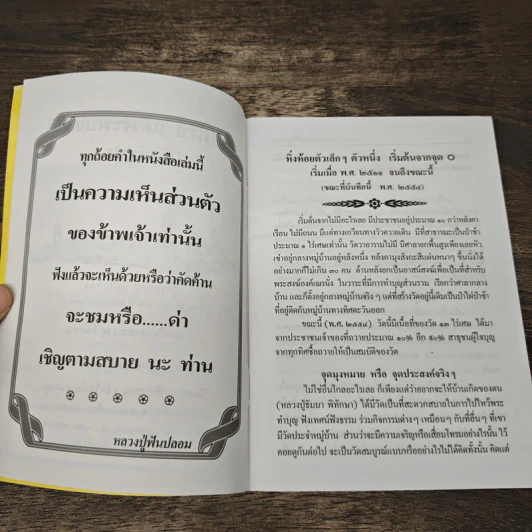 ทุกถ้อยคำในหนังสือเล่มนี้
เป็นความเห็นส่วนตัว
ของข้าพเจ้าเท่านั้น
ฟังแล้วจะเห็นด้วยหรือว่าคัดค้าน
จะชมหรือ......ด่า
เชิญตามสบาย นะ ท่าน
หลวงปู่ฟันปลอม
หิ่งห้อยตัวเล็กๆ ตัวหนึ่ง เริ่มต้นจากจุด ๐
เริ่มเมื่อ พ.ศ. ๒๕๑๑ จนถึงขณะนี้
(ขณะที่บันทึกนี้ พ.ศ. ๒๕๕๔)
เริ่มต้นจากไม่มีอะไรเลย มีประชาชนอยู่ประมาณ ๑๐ กว่าหลังคา
เรือน ไม่มีถนน มีแต่ทางเกวียนทางวัวควายเดิน มีที่สาธารณะเป็นป่าช้า
ประมาณ ๑ ไร่เศษเท่านั้น วัดวาอารามไม่มี มีศาลายกพื้นสูงเพียงเลยหัว
เข้าอยู่กลางหมู่บ้านอยู่หนึ่งหลัง หลังคามุงสังกะสีแผ่นหนาๆ ขึ้นนั่งได้
อย่างมากก็ไม่เกิน ๓๐ คน ด้านหลังยกเป็นอาสน์สงฆ์เพื่อเป็นที่สำหรับ
พระสงฆ์องค์เณรนั่ง ในวาระที่มีการทำบุญส่วนรวม เรียกว่าศาลากลาง
บ้าน และก็ตั้งอยู่กลางหมู่บ้านจริง ๆ แต่ที่สร้างวัดอยู่นี้เดิมเป็นป่าไผ่ป่าช้า
ที่อยู่ติดกับหมู่บ้านทางทิศตะวันออก
ขณะนี้ (พ.ศ. ๒๕๕๔) วัดนี้มีเนื้อที่ของวัด ๑๓ ไร่เศษ ได้มา
จากประชาชนเจ้าของที่ถวายประมาณ ๑๐% อีก ๙๐% สาธุชนผู้ใจบุญ
จากทุกทิศซื้อถวายให้เป็นสมบัติของวัด
จุดมุงหมาย หรือ จุดประสงค์จริงๆ
ไม่ใช่อื่นไกลอะไรเลย ก็เพียงแต่ว่าอยากจะให้บ้านเกิดของตน
(หลวงปู่ธัมมา พิทักษา) ได้มีวัดเป็นที่สะดวกสบายในการไปไหว้พระ
ทำบุญ ฟังเทศน์ฟังธรรม ร่วมกิจกรรมต่างๆ เหมือนๆ กับที่อื่นๆ ที่เขา
มีวัดประจำหมู่บ้าน ส่วนว่าจะมีความเจริญหรือเสื่อมโทรมอย่างไรนั้น ไว้
คอยดูกันต่อไป จะเป็นวัดสมบูรณ์แบบหรืออย่างไรไม่ได้คิดทั้งนั้น คิดแต่